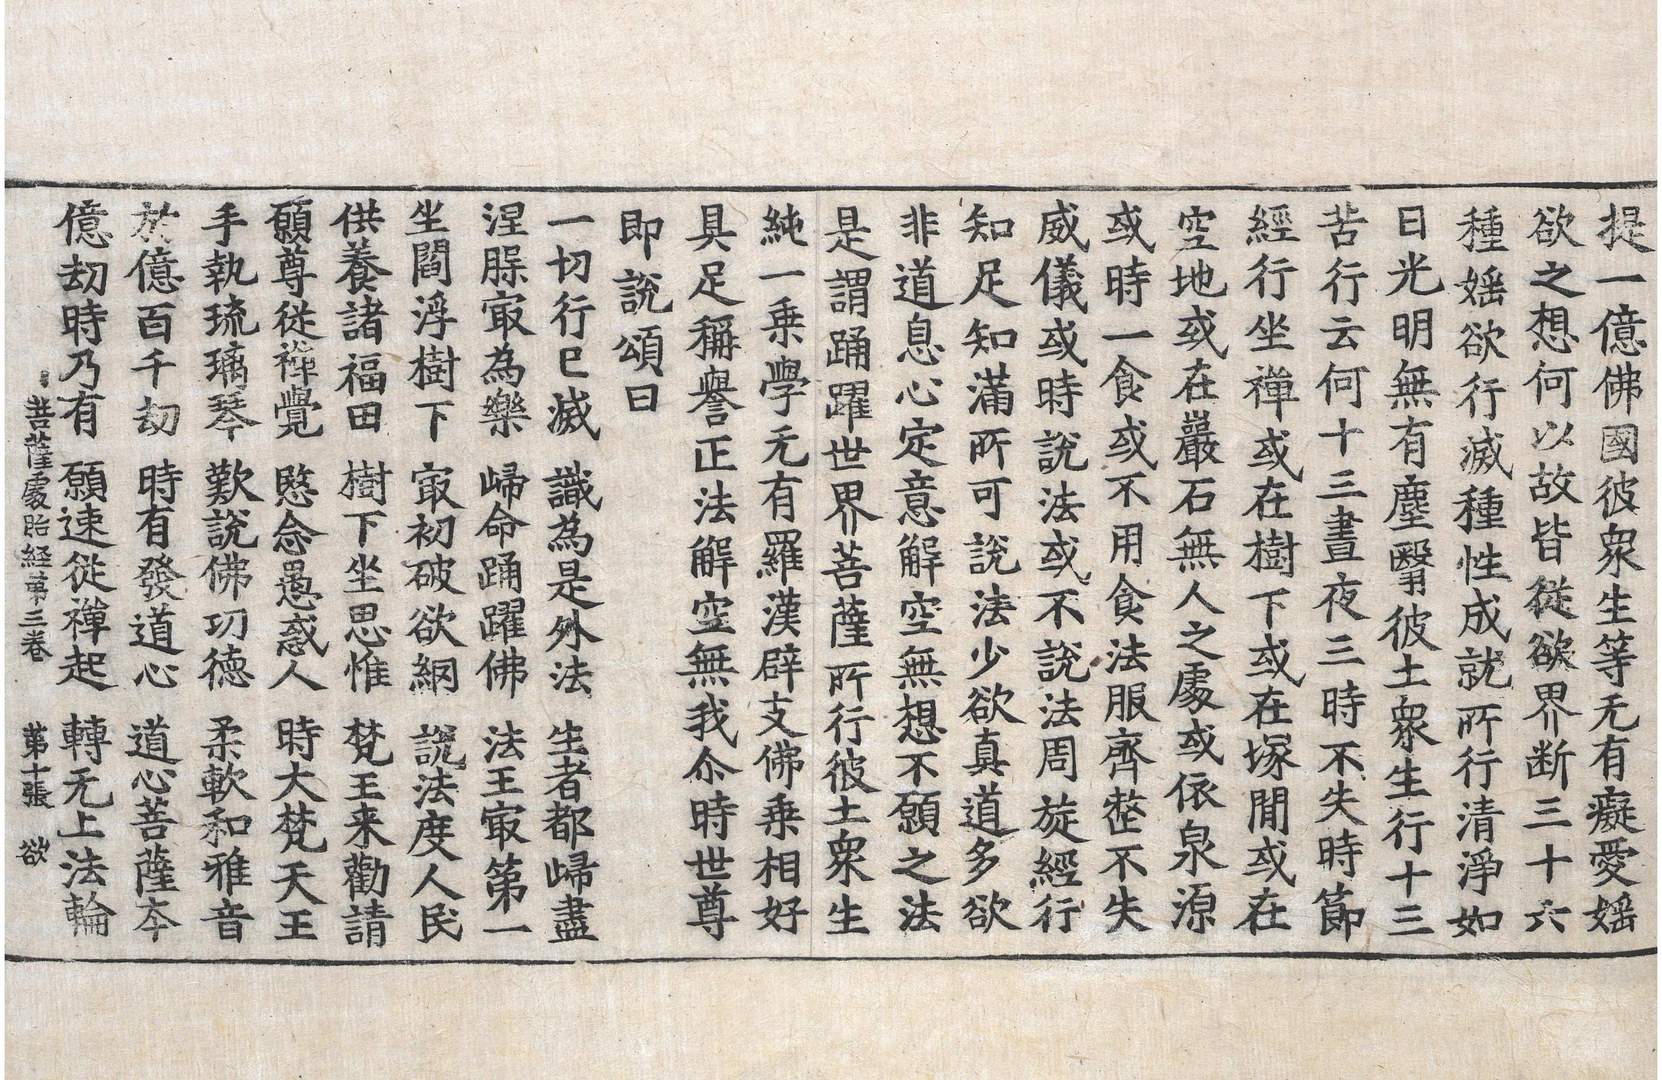 提一億佛國彼衆生等无有癡愛婬
欲之想何以故皆從欲界断三十六
種婬欲行滅種性成就所行清淨如
日光明無有塵翳彼土衆生行十三
苦行云何十三晝夜三時不失時節
經行坐禪或在樹下或在塚間或在
空地或在巖石無人之處或依泉源
或時一食或不用食法服齊整不失
威儀或時說法或不說法周旋經行
知足知滿所可說法少欲真道多欲
非道息心定意解空無想不願之法
是謂踊躍世界菩薩所行彼土衆生
純一乗學无有羅漢辟支佛乗相好
具足稱譽正法解空無我尒時世尊
即說頌曰
一切行已滅　識為是外法　生者都歸盡
涅槃㝡為樂　歸命踊躍佛　法王㝡第一
坐閻浮樹下　㝡初破欲網　說法度人民
供養諸福田　樹下坐思惟　梵王来勸請
願尊從禪覺　愍念愚惑人　時大梵天王
手執琉璃琴　歎說佛功德　柔軟和雅音
於億百千劫　時有發道心　道心菩薩夲
億劫時乃有　願速從禪起　轉无上法輪
菩薩處胎経第三卷　第十張　欲